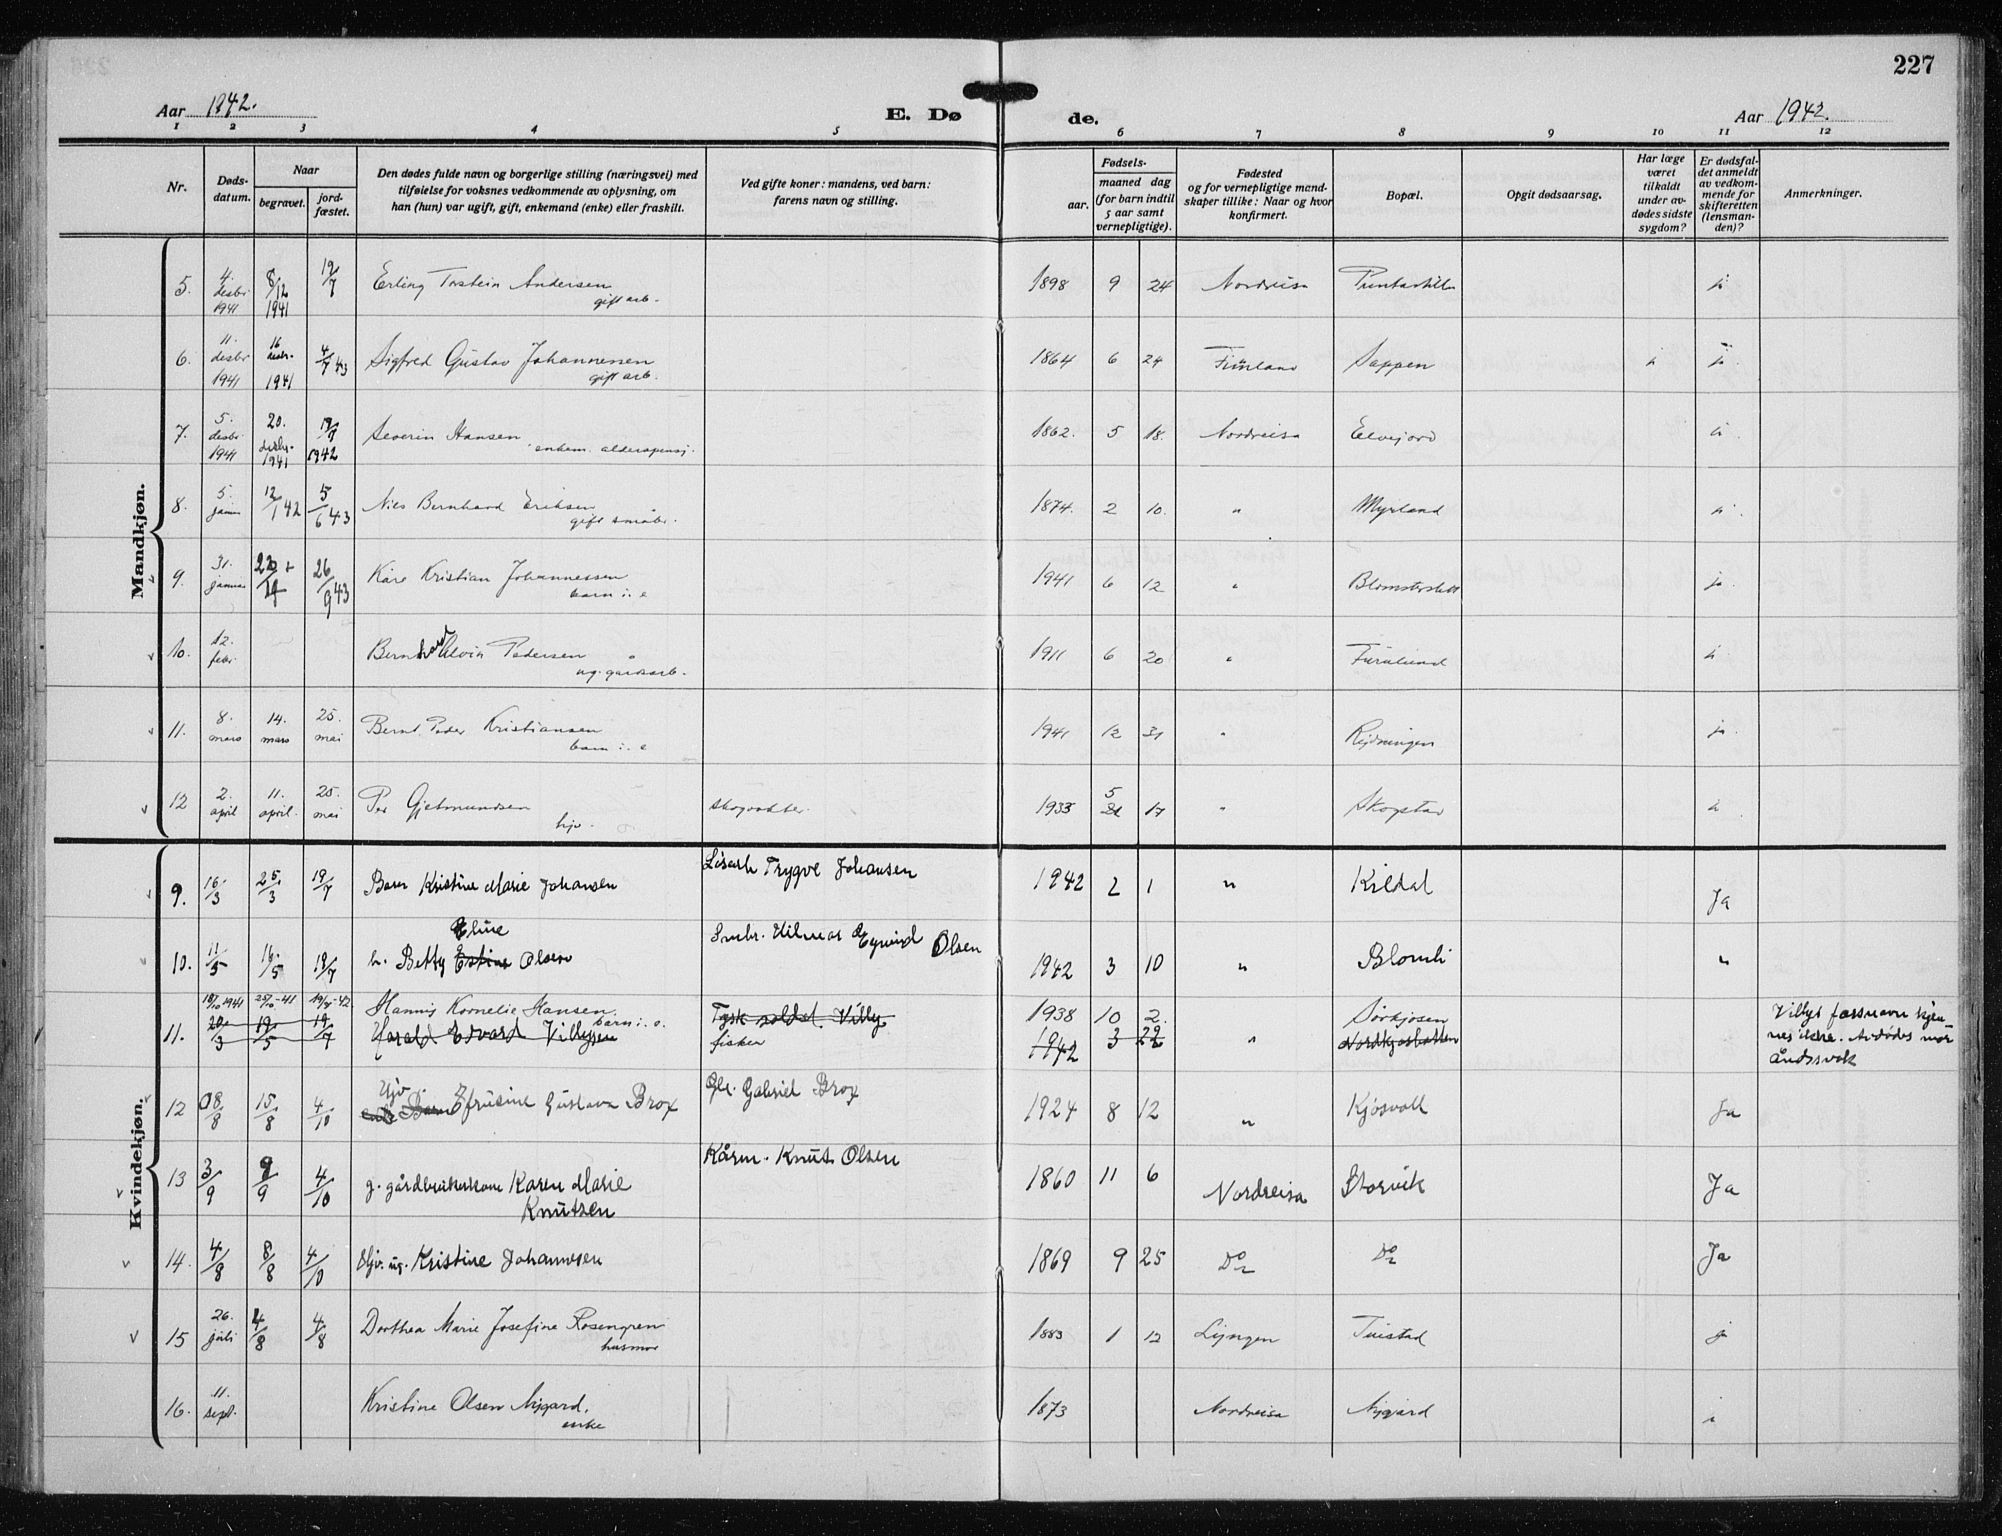 227
Aar 1942. E. Dø de. Aar 1942.
1 2 3 4 5 6 7 8 9 10 11 12
Nr.
Døds-
datum.
Naar
begravet.
jord-
fæstet.
Den dødes fulde navn og borgerlige stilling (næringsvei) med
tilføielse for voksnes vedkommende av oplysning, om
han (hun) var ugift, gift, enkemand (enke) eller fraskilt.
Ved gifte koner: mandens, ved barn:
farens navn og stilling.
Fødsels-
aar.
maaned dag
(for barn indtil
5 aar samt
vernepligtige).
Fødested
og for vernepligtige mand-
skaper tillike: Naar og hvor
konfirmert.
Bopæl.
Opgit dødsaarsag.
Har læge
været
tilkaldt
under av-
dødes sidste
sygdom?
Er dødsfal-
det anmeldt
av vedkom-
mende for
skifteretten
(lensman-
den)?
Anmerkninger.
Mandkjøn.
5. 4. desbr 1941 8/12 1941 19/7 Erling Tostein Andersen 1898 9 24 Nordreisa
gift arb.
6. 11. desbr 1941 16 desbr. 1941 4/7 43 Sigfred Gustav Johannessen 1864 6 24 Finnland Sappen ja
gift arb.
7. 5. desbr 1941 20. desbr. 1941 19/7 1942 Severin Hansen 1862. 5 18. Nordreisa Elvejord
enkem. alderspensj.
8. 5. janu 12/1 42 5/6 43 Nils Bernhard Eriksen 1874. 2 10. " Myrland
gift småbr.
9. 31. januar 26/9 43 Kåre Kristian Johannessen 1941 6 12 " Blomsterslett ja
barn i. e
10. 12. febr. Bernhard Alvin Pedersen 1911 6 20 " Furulund
ug. gardsarb.
11. 8. mars 14. mars 25. mai Bernt Peder Kristiansen 1941 12 31 " ja.
barn i. e
12 2. april 11. april. 25. mai Per Gjetmundsen skogvokter. 1935 5 17 " Skogstad
hjv.
Kvindekjøn.
9. 16/3 25/3 19/7 Barn Kristine Marie Johansen Løsarb Trygve Johansen 1942 2 1 " Kildal Ja
Eline
10. 11/5 16/5 19/7 b. Betty Estine Olsen Smbr. Hilmar Eyvind Olsen 1942 3 10 " Blomli "
18/10 1941 25/10-41 19/7-42 Hannis Kornelie Hansen. Tysk soldat, Villy 1938 10 2. Sørkjosen
barn i. e.
11. 20/3 19/5 19/7 Harald Edvard Villysen fisker 1942 3 22 " Nordkjosbotten
Villys farsnavn kjen-
nes ikke. Avdødes mor
åndssvak
Hjv
12 08/8 15/8 4/10 Barn Efrusine Gustava Brox Gbr. Gabriel Brox 1924 8 12 " Kjosvoll Ja
13 3/9 9/9 4/10 g. gårdbrukerkone Karen Marie Kårm. Knut Olsen 1860 11 6 Nordreisa Storvik Ja
Knutsen
14. 4/8 8/8 4/10 Hjv. ug. Kristine Johannesen 1869 9 25 Do Do Ja
15 26. juli 4/8 4/8 Dorthea Marie Josefine Rosengren 1883 1 12 Lyngen Tuistad ja
husmor
16. 11. sept. Kristine Olsen Nygard. 1873 Nordreisa Nygård
enke